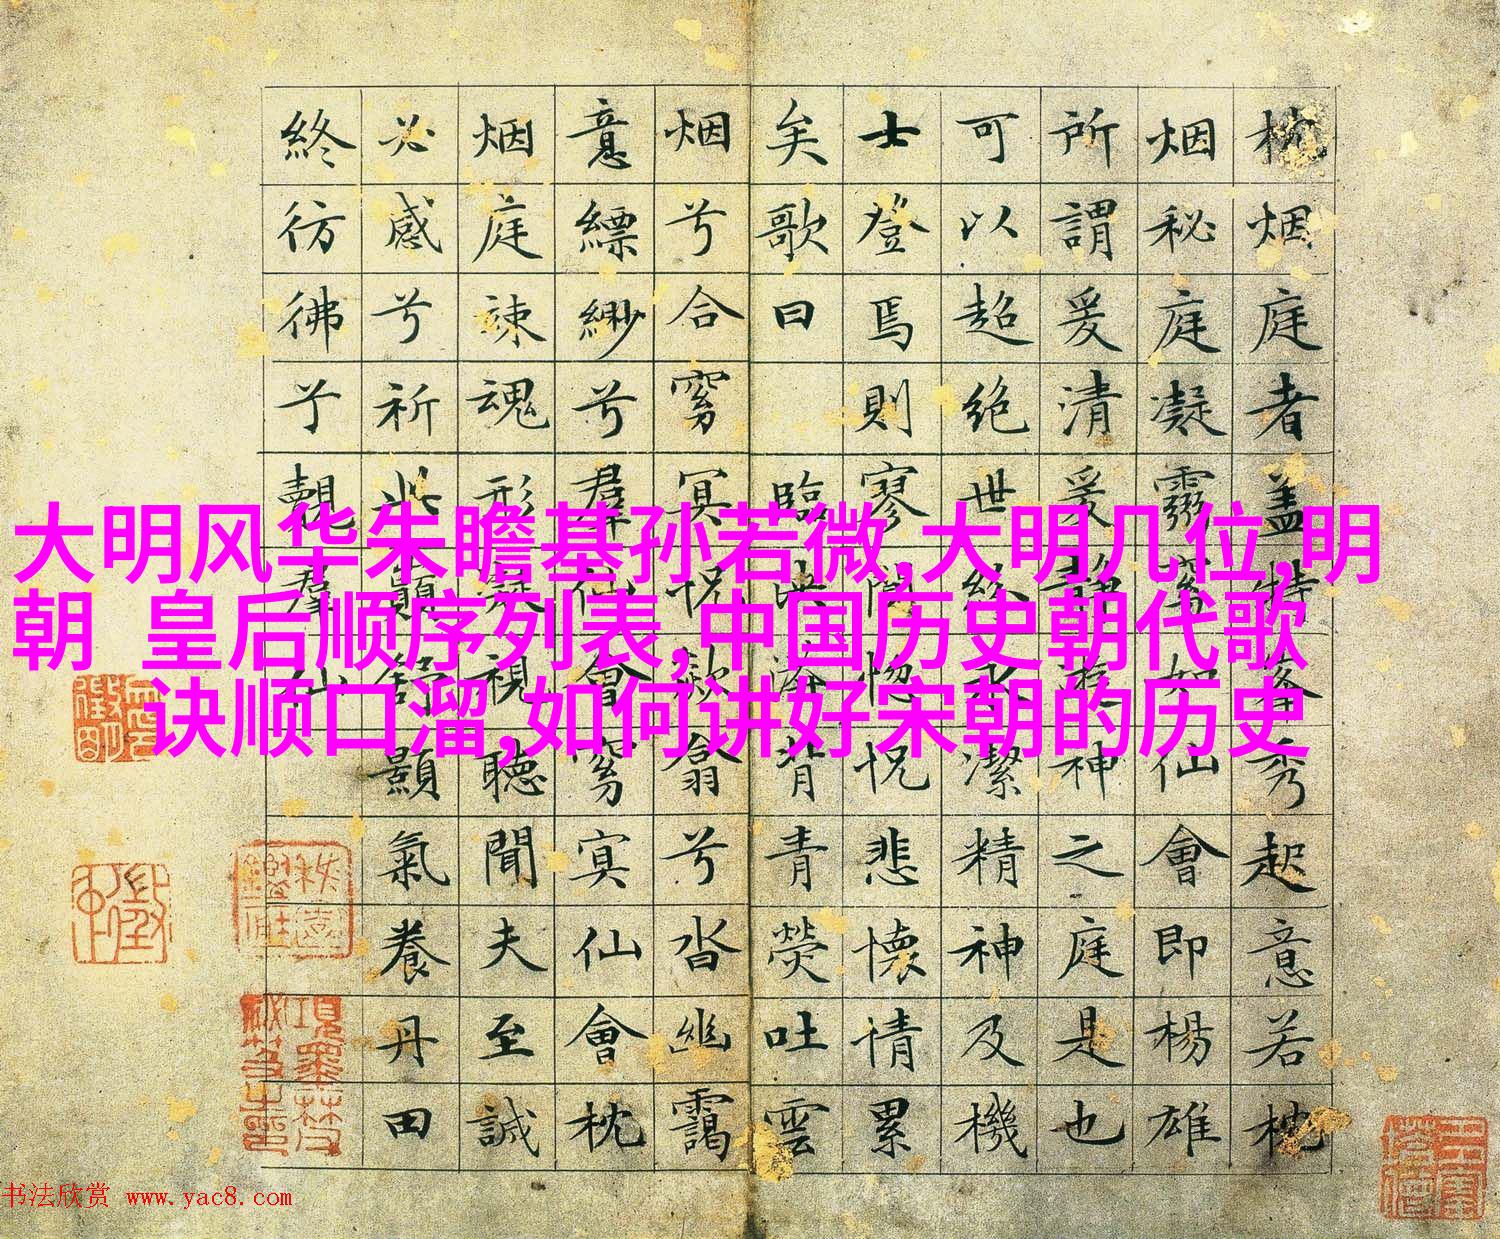 枕烟庭者盖特峯秀起意若枕
烟秘庭凝窅如仙會即楊雄
所謂爰清爰静神之庭是也
可以超绝世紛永潔精神及機
士登焉則寥惚怳悲懷情累
矣歌曰 臨泱漭背青熒吐雲
烟兮合窅冥怳欻翕兮沓幽靄
意縹緲兮羣仙會窅冥仙會枕
烟庭竦魂形凝視聽聞夫至誠
必感兮祈此巔舒顥氣養丹田
終彷彿兮覩羣仙
大明风华朱瞻基孙若微,大明几位,明
朝 皇后顺序列表,中国历史朝代歌
诀顺口溜,如何讲好宋朝的历史
书法欣赏 www.yac8.com